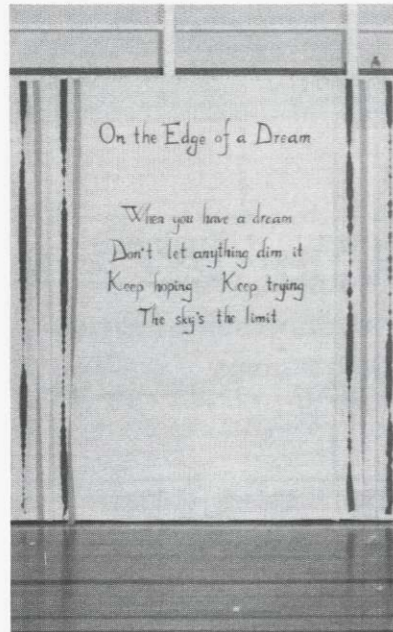 A
On the Edge of a Dream
When you have a dream
Don't let anything dim it
Keep hoping Keep trying
The sky's the limit